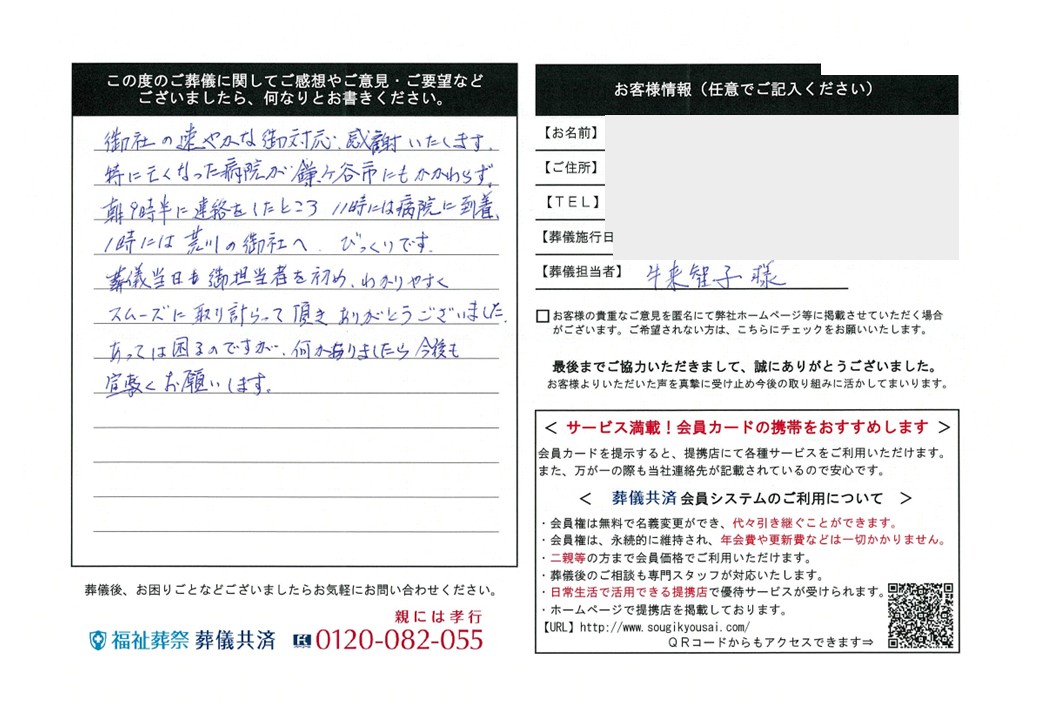 この度のご葬儀に関してご感想やご意見・ご要望など
ございましたら、何なりとお書きください。
御社の速やかな御対応、感謝いたします。
特に亡くなった病院が鎌ケ谷市にもかかわらず。
朝9時半に連絡をしたところ 11時には病院に到着、
1時には荒川の御社へ、びっくりです。
葬儀当日も御担当者を初め、わかりやすく
スムーズに取り計らって頂き ありがとうございました。
あっては困るのですが、何かありましたら今後も
宜敷くお願いします。
葬儀後、お困りごとなどございましたらお気軽にお問い合わせください。
親には孝行
福祉葬祭 葬儀共済 0120-082-055
お客様情報（任意でご記入ください）
【お名前】
【ご住所】
【TEL】
【葬儀施行日
【葬儀担当者】 牛来智子 様
□お客様の貴重なご意見を匿名にて弊社ホームページ等に掲載させていただく場合
がございます。ご希望されない方は、こちらにチェックをお願いいたします。
最後までご協力いただきまして、誠にありがとうございました。
お客様よりいただいた声を真摯に受け止め今後の取り組みに活かしてまいります。
＜ サービス満載！会員カードの携帯をおすすめします ＞
会員カードを提示すると、提携店にて各種サービスをご利用いただけます。
また、万が一の際も当社連絡先が記載されているので安心です。
＜ 葬儀共済 会員システムのご利用について ＞
・会員権は無料で名義変更ができ、代々引き継ぐことができます。
・会員権は、永続的に維持され、年会費や更新費などは一切かかりません。
・二親等の方まで会員価格でご利用いただけます。
・葬儀後のご相談も専門スタッフが対応いたします。
・日常生活で活用できる提携店で優待サービスが受けられます。
・ホームページで提携店を掲載しております。
【URL】http://www.sougikyousai.com/
QRコードからもアクセスできます⇒